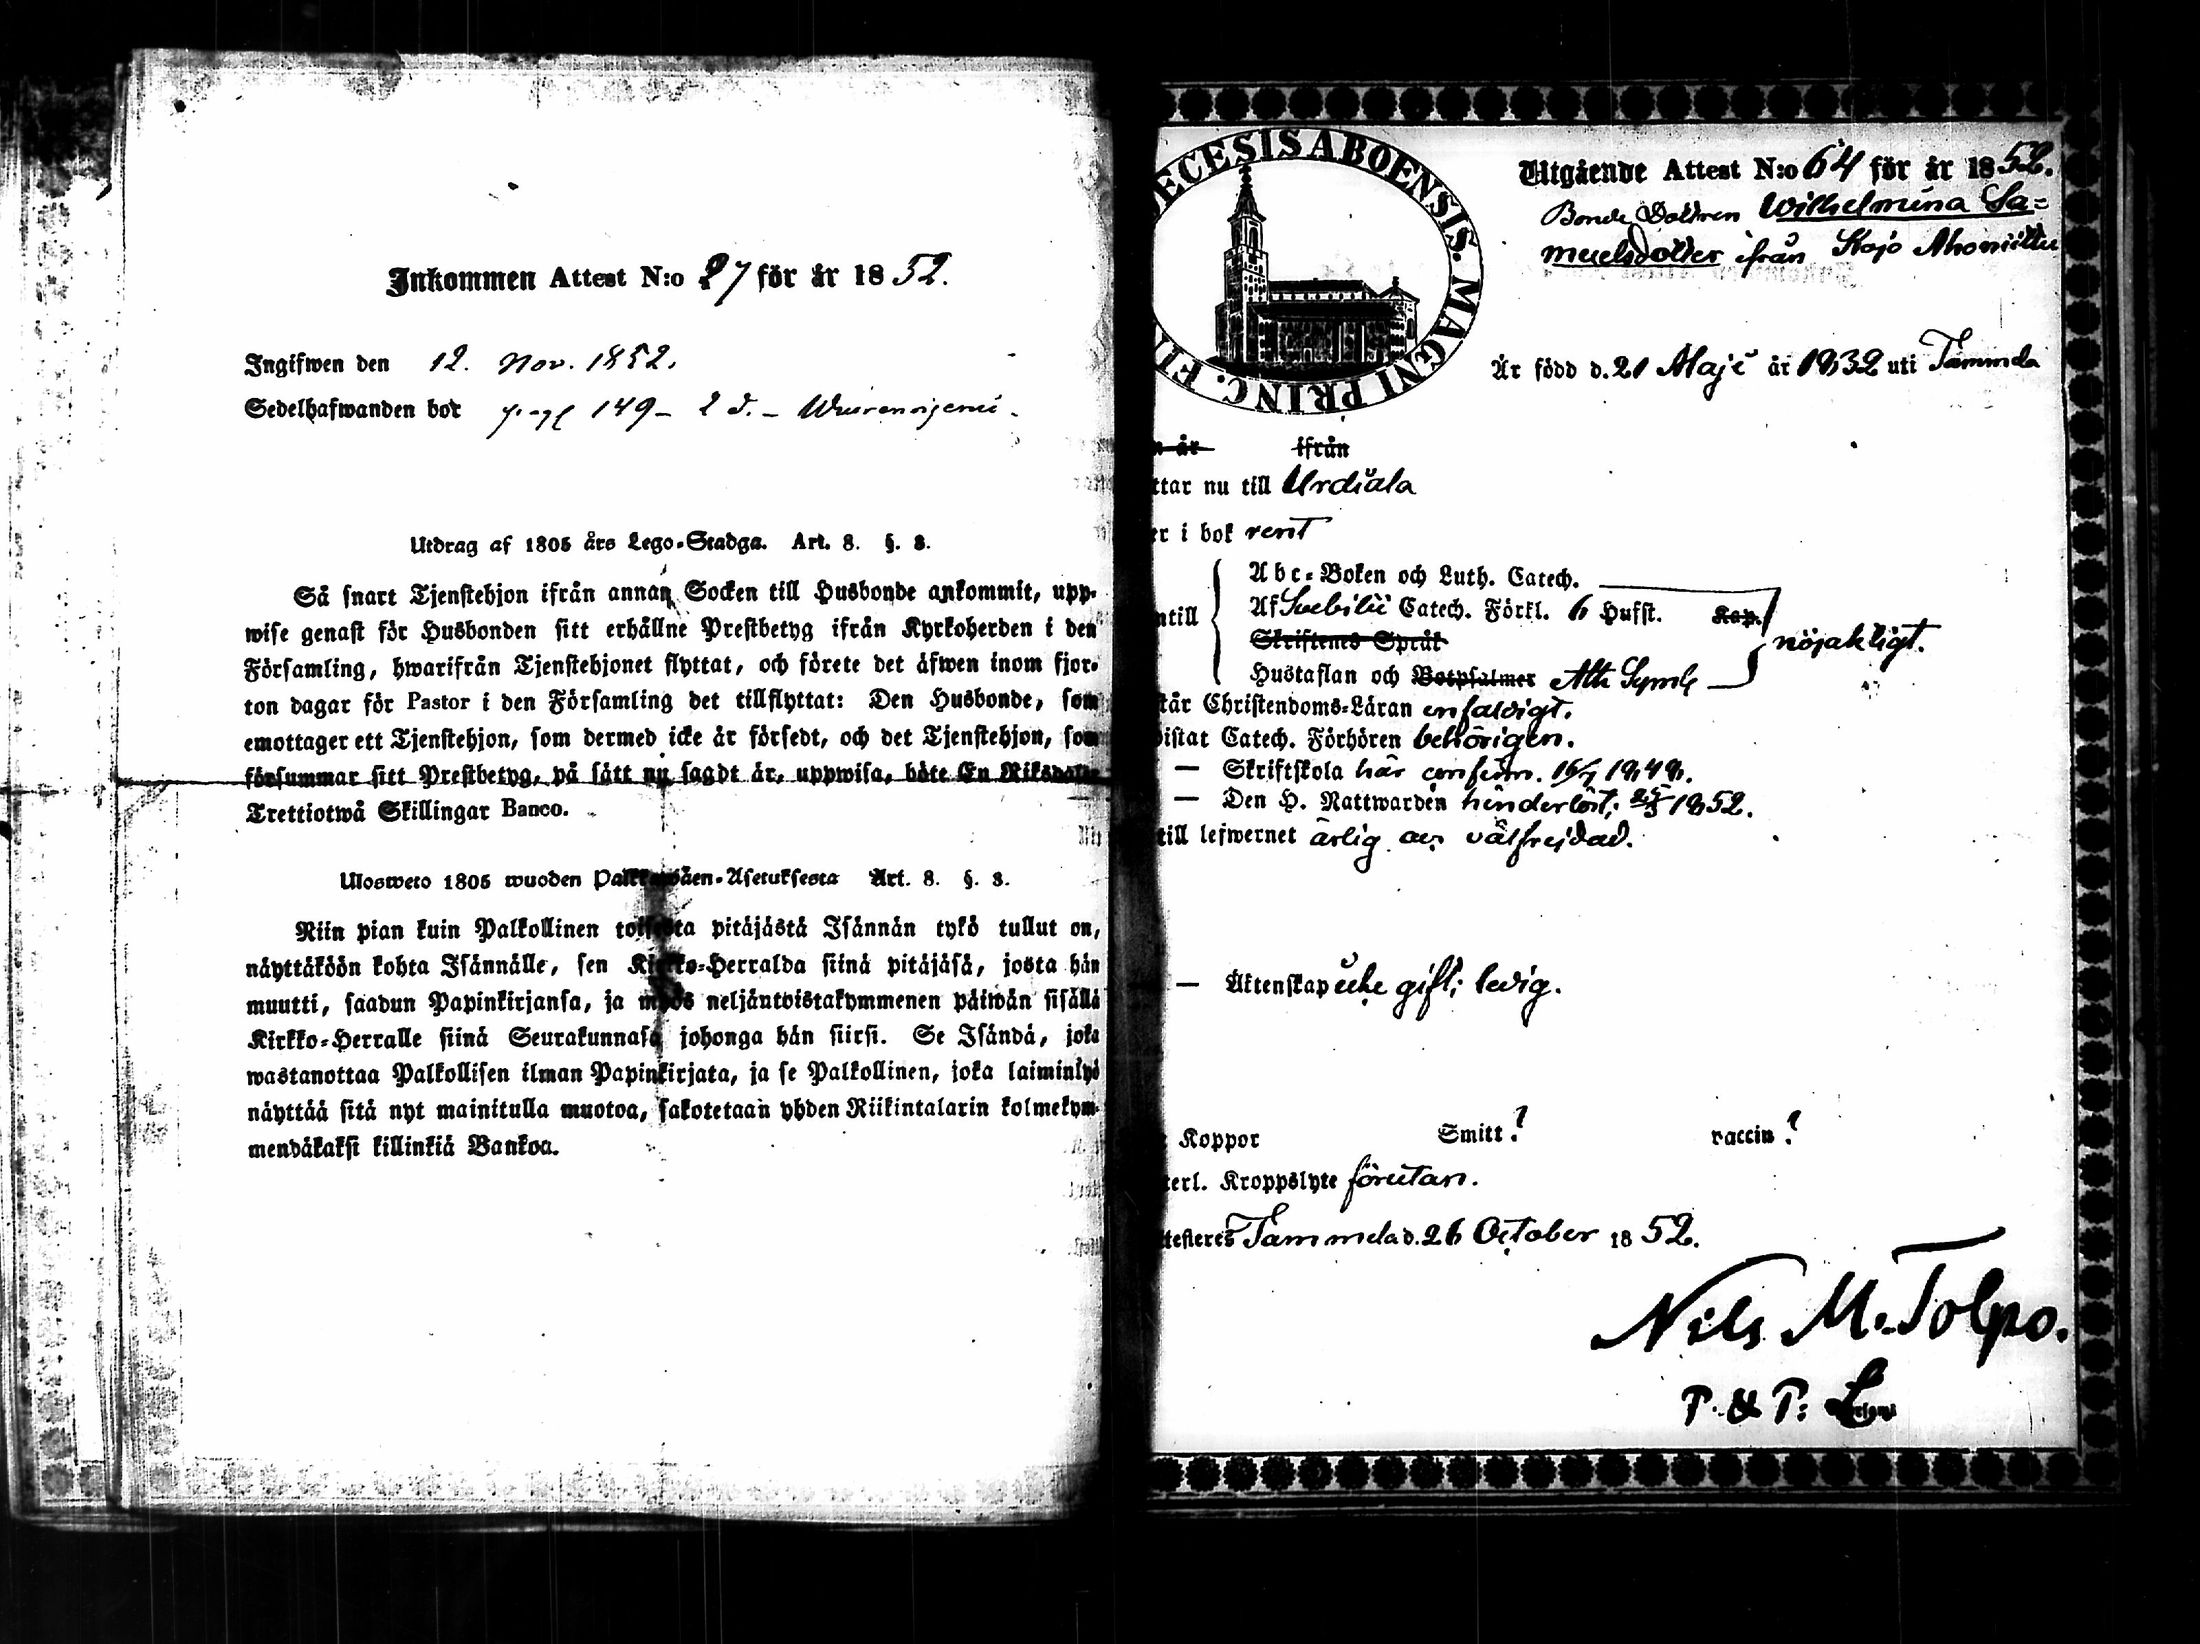 Inkommen Attest N:o 27 för år 1852.
Ingifwen den 12. Nov. 1852.
Sedelhafwanden bor pag 149 - 2 d. -
Utdrag af 1805 års Lego-Stadga. Art. 8. §. 8.
Så snart Tjenstehjon ifrån annan Socken till Husbonde ankommit, upp-
wise genast för Husbonden sitt erhållne Prestbetyg ifrån Kyrkoherden i den
Församling, hwarifrån Tjenstehjonet flyttat, och förete det äfwen inom fjor-
ton dagar för Pastor i den Församling det tillflyttat: Den Husbonde, som
emottager ett Tjenstehjon, som dermed icke är försedt, och det Tjenstehjon, som
försummar sitt Prestbetyg, på sätt nu sagdt är, uppwisa, böte En Riksdaler
Trettiotwå Skillingar Banco.
Ulosweto 1805 wuoden Palkkawäen-Asetuksesta Art. 8. §. 8.
Niin pian kuin Palkollinen toisesta pitäjästä Isännän tykö tullut on,
näyttäköön kohta Isännälle, sen Kirkko-Herralda siinä pitäjäsä, josta hän
muutti, saadun Papinkirjansa, ja myös neljäntoistakymmenen päiwän sisällä
Kirkko-Herralle siinä Seurakunnasa johonga hän siirsi. Se Isändä, joka
wastanottaa Palkollisen ilman Papinkirjata, ja se Palkollinen, joka laiminlyö
näyttää sitä nyt mainitulla muotoa, sakotetaan yhden Riikintalarin kolmekym-
mendäkaksi killinkiä Bankoa.
ECESIS ABOENSIS. MAGNI PRINC. FI
Utgående Attest N:o 64 för år 1852.
Bonde Dottren Wilhelmina Sa=
muelsdotter ifrån Kojo
Är född d. 21 Maji år 1832 uti Tammela
n år ifrån
ttar nu till Urdiala
er i bok rent
Abc-Boken och Luth. Catech.
ntill Af Svebilii Catech. Förkl. 6 Hufst. Kap. nöjaktigt.
Skriftenes Språk
Hustaflan och Botpsalmer Ath. Symb
tår Christendoms-Läran enfaldigt.
istat Catech. Förhören behörigen.
— Skriftskola här confirm. 16/7 1848.
— Den H. Nattwarden hinderlöst; 1852.
till lefwernet ärlig och välfrejdad.
— Äktenskap icke gift; ledig.
Koppor Smitt? vaccin?
terl. Kroppslyte förutan.
ttesteres Tammela d. 26 October 1852.
Nils M. Tolpo.
P. & P: L.